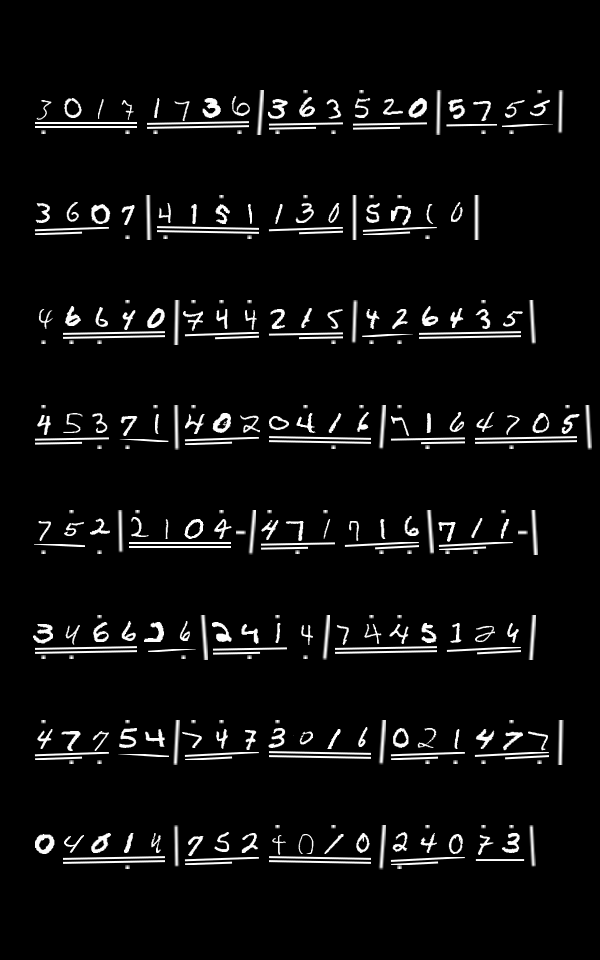 3017 1736|363 520|57 55|
3607|4151 130|5710|
46640|744 215|42 6435|
453 71|402 0416|716 4705|
752|2104-|471 716|711-|
3466 36|241 4|7445 124|
477 54|747 3016|021 477|
04614|752 4010|240 73|